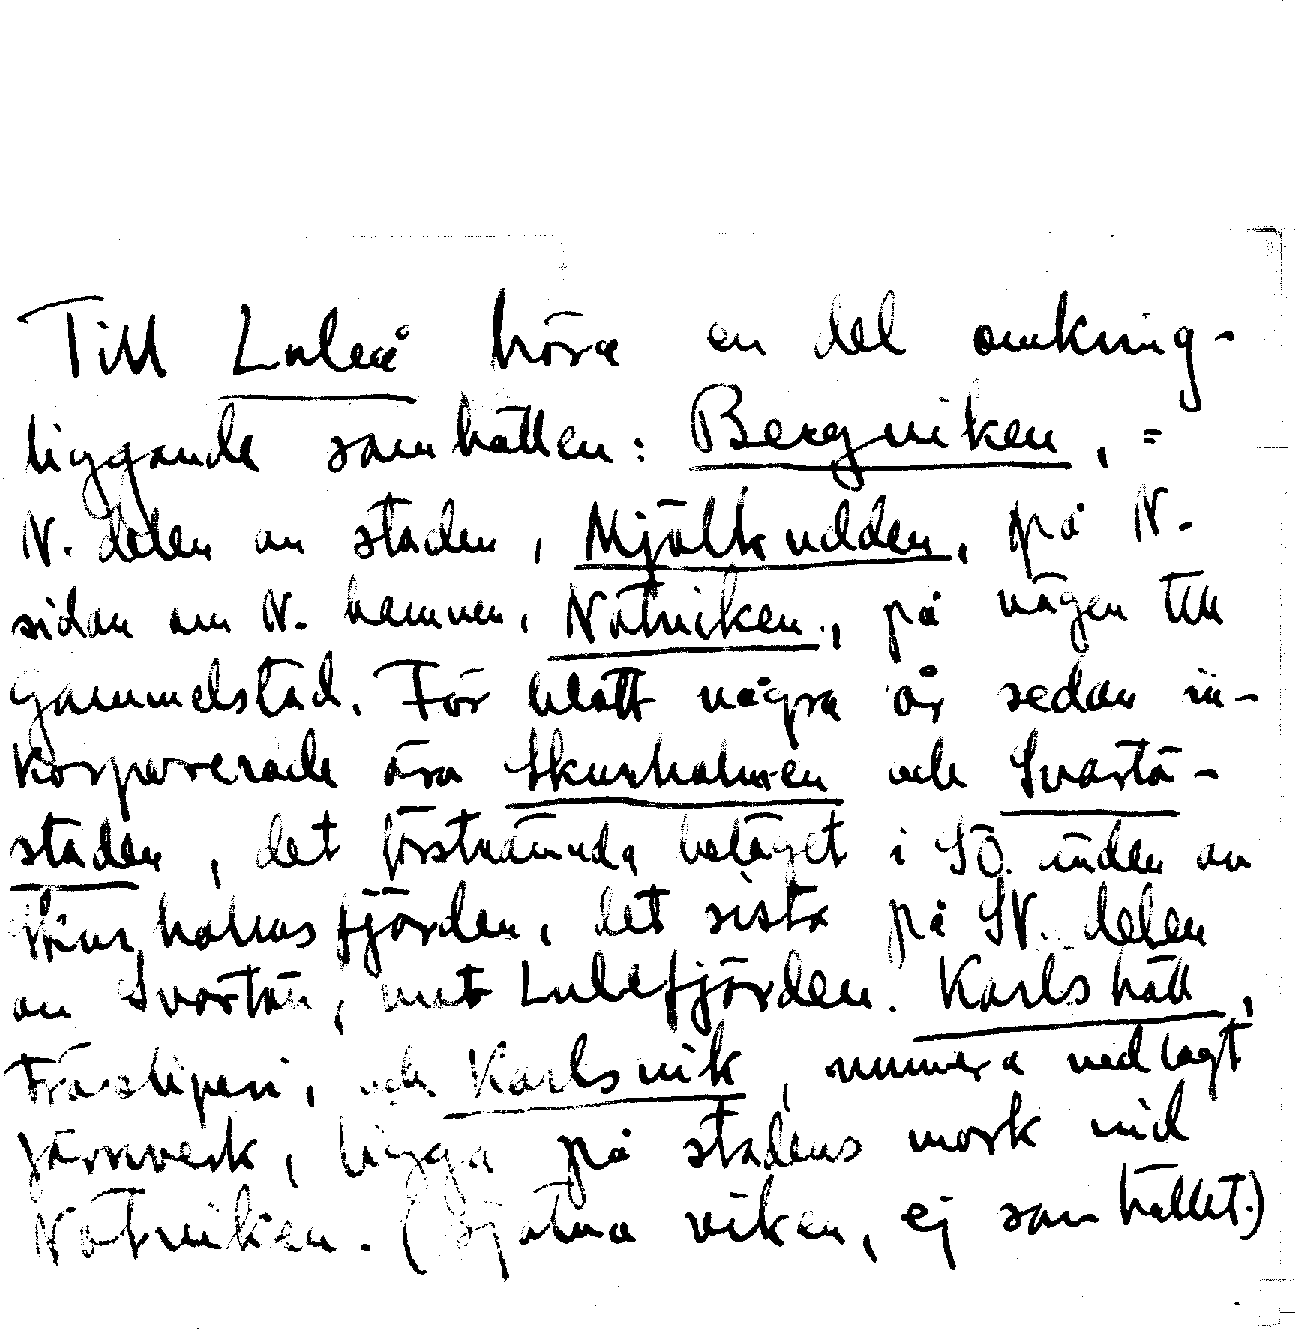 Till Luleå höra en del omkring-
liggande samhällen: Bergviken, =
N. delen av staden, Mjölkudden, på N.
sidan om N. hamnen, Notviken, på vägen till
Gammelstad. För blott några år sedan in-
korporerade äro Skurholmen och Svartö-
staden, det förstnämnda beläget i SÖ. änden av
Skurholmsfjärden, det sista på SV. delen
av Svartön, mot Lulefjärden. Karlshäll,
träsliperi, och Karlsvik, numera nedlagt
järnverk, ligga på stadens mark vid
Notviken. (själva viken, ej samhället.)